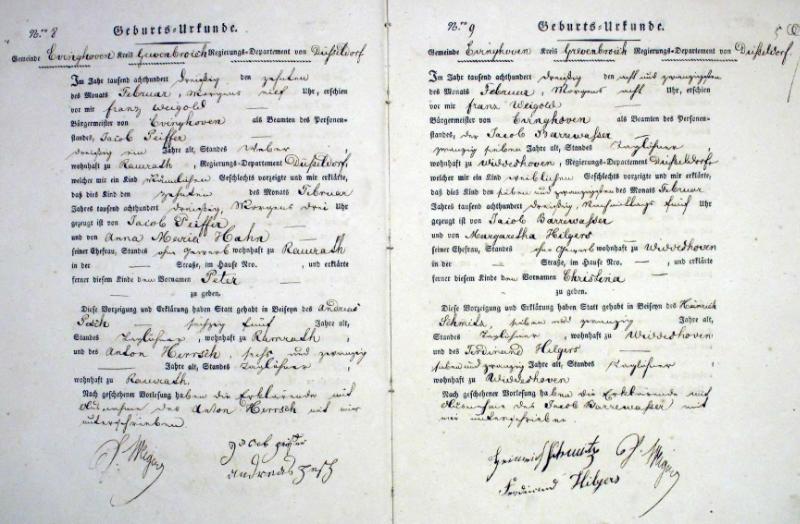 No. 8
Geburts-Urkunde.
Gemeinde Evinghoven Kreis Grevenbroich Regierungs-Departement von Düsseldorf
Im Jahr tausend achthundert dreißig, den zehnten
des Monats Februar, Morgens elf Uhr, erschien
vor mir Franz Weigold
Bürgermeister von Evinghoven als Beamten des Personen-
standes, Jacob Peiffer
dreißig ein Jahre alt, Standes Weber
wohnhaft zu Ramrath, Regierungs-Departement Düsseldorf,
welcher mir ein Kind männlichen Geschlechts vorzeigte und mir erklärte,
daß dies Kind den zehnten des Monats Februar
Jahres tausend achthundert dreißig, Morgens drei Uhr
gezeugt ist von Jacob Peiffer
und von Anna Maria Hahn
seiner Ehefrau, Standes ohne Gewerb wohnhaft zu Ramrath
in der Straße, im Hause Nro. , und erklärte
ferner diesem Kinde den Vornamen Peter
zu geben.
Diese Vorzeigung und Erklärung haben Statt gehabt in Beiseyn des Andreas
Pesch sechzig fünf Jahre alt,
Standes Taglöhner, wohnhaft zu Ramrath
und des Anton Herrsch, sechs und zwanzig
Jahre alt, Standes Taglöhner,
wohnhaft zu Ramrath.
Nach geschehener Vorlesung haben die Erklärende mit
Ausnahme des Anton Herrsch mit mir
unterschrieben.
Andreas Pesch
No. 9
Geburts-Urkunde.
Gemeinde Evinghoven Kreis Grevenbroich Regierungs-Departement von Düsseldorf.
Im Jahr tausend achthundert dreißig den acht und zwanzigsten
des Monats Februar, Morgens acht Uhr, erschien
vor mir Franz Weigold
Bürgermeister von Evinghoven als Beamten des Personen-
standes, der Jacob Barrewasser
zwanzig sieben Jahre alt, Standes Taglöhner
wohnhaft zu Widdeshoven, Regierungs-Departement Düsseldorf
welcher mir ein Kind weiblichen Geschlechts vorzeigte und mir erklärte,
daß dies Kind den sieben und zwanzigsten des Monats Februar
Jahres tausend achthundert dreißig, Nachmittags fünf Uhr
gezeugt ist von Jacob Barrewasser
und von Margaretha Hilgers
seiner Ehefrau, Standes ohne Gewerb wohnhaft zu Widdeshoven
in der Straße, im Hause Nro. , und erklärte
ferner diesem Kinde den Vornamen Christina
zu geben.
Diese Vorzeigung und Erklärung haben Statt gehabt in Beiseyn des Heinrich
Schmitz, sieben und zwanzig Jahre alt,
Standes Taglöhner, wohnhaft zu Widdeshoven
und des Ferdinand Hilgers
sieben und zwanzig Jahre alt, Standes Taglöhner
wohnhaft zu Widdeshoven
Nach geschehener Vorlesung haben die Erklärende mit
Ausnahme des Jacob Barrewasser mit
mir unterschrieben.
Heinrich Schmitz
Ferdinand Hilgers